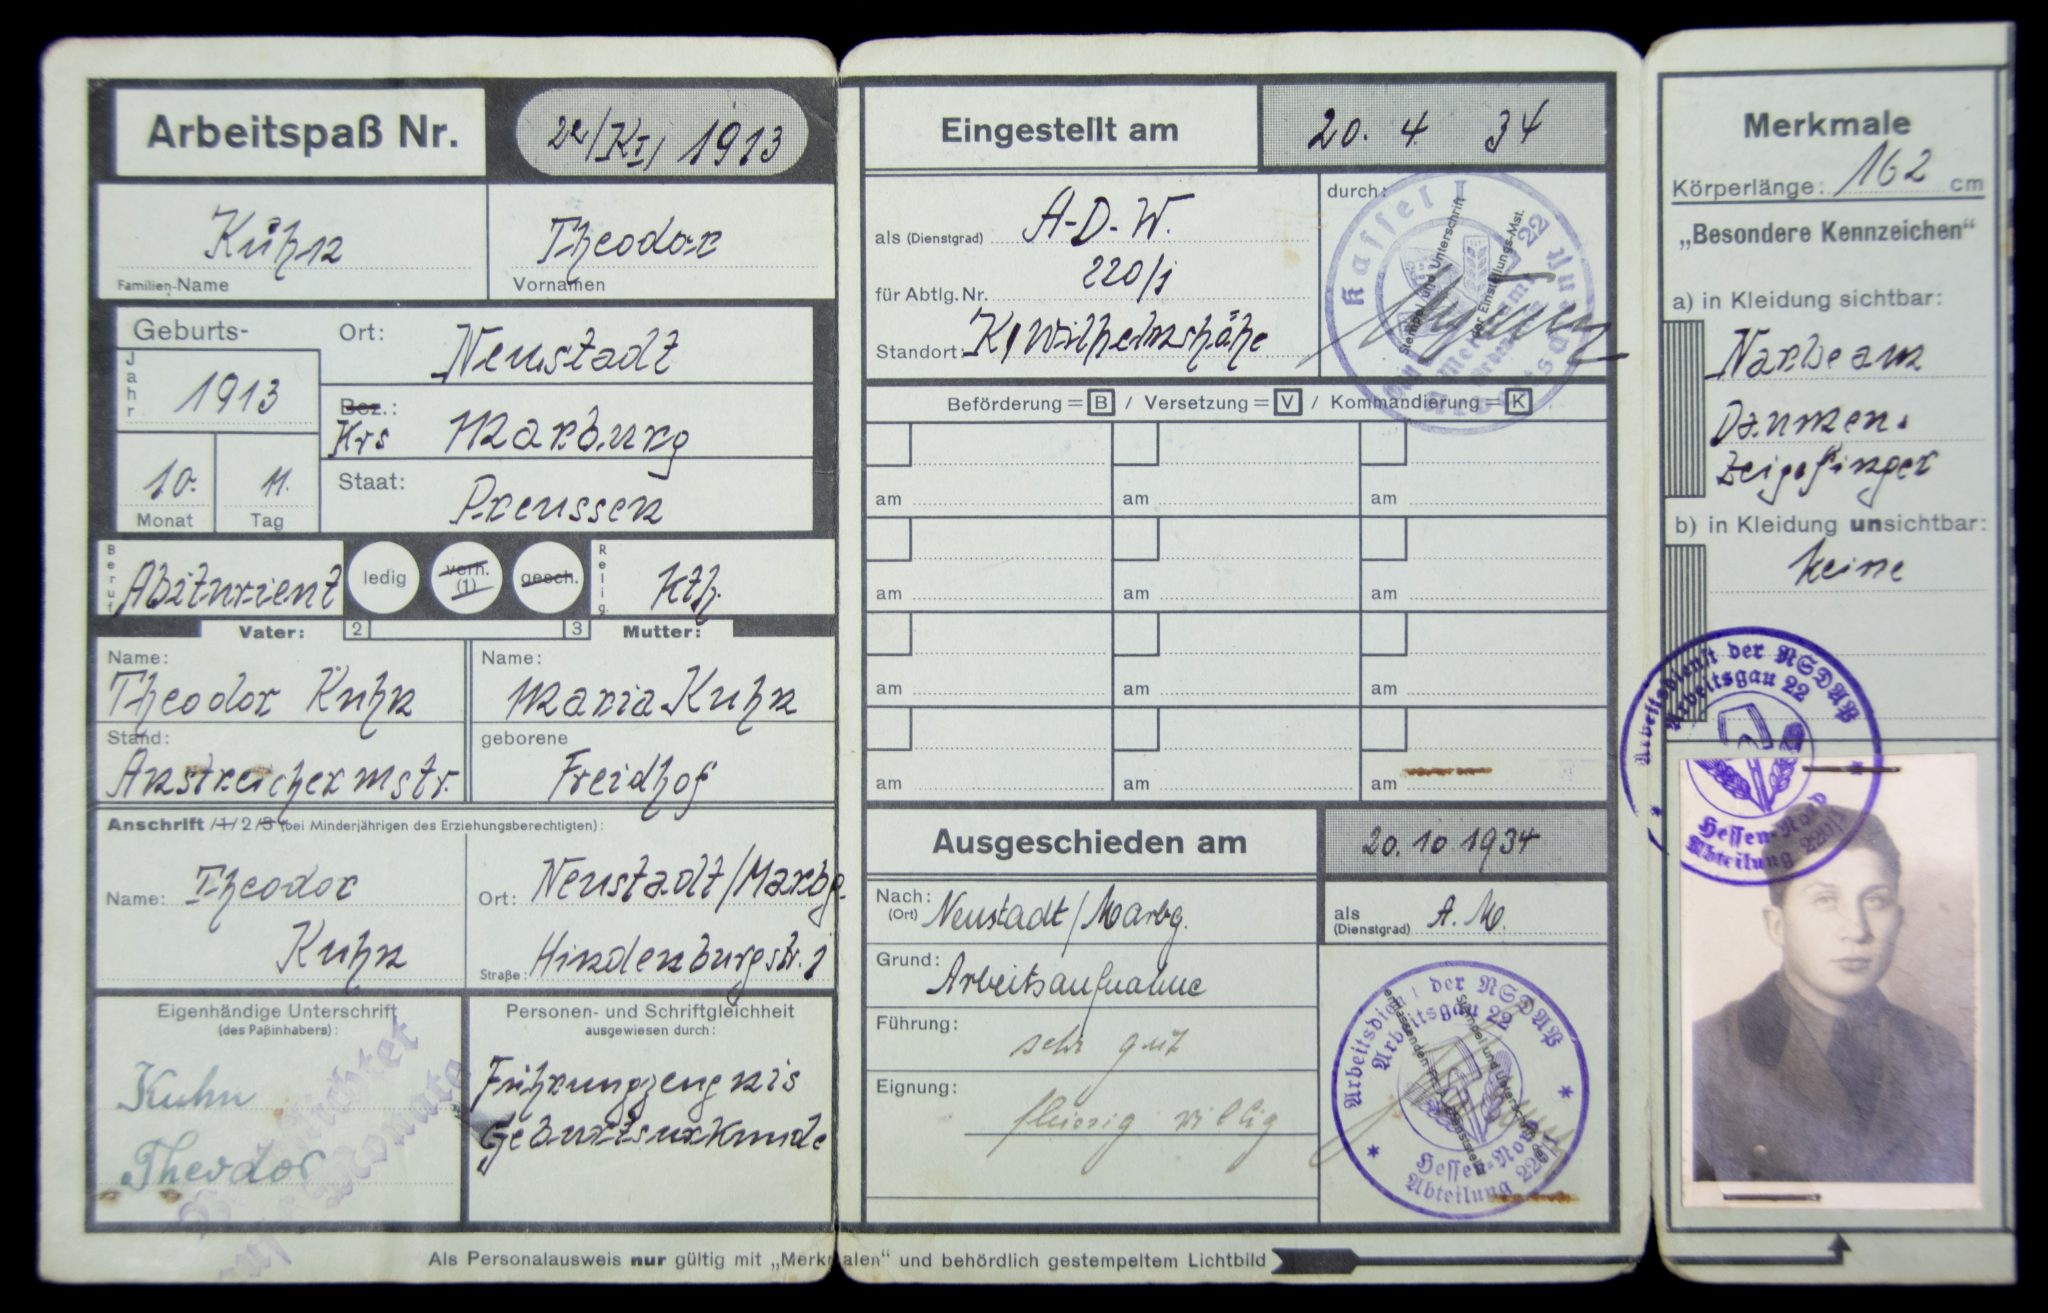 Arbeitspaß Nr. 22/KI/ 1913
Kuhn Theodor
Familien-Name Vornamen
Geburts- Ort: Neustadt
Jahr 1913
Bez.: Krs Marburg
Staat: Preussen
10. 11.
Monat Tag
Beruf Abiturient ledig verh. (1) gesch. Relig. kth.
Vater: 2 3 Mutter:
Name: Theodor Kuhn
Name: Maria Kuhn
Stand: Anstreichermstr.
geborene Freidhof
Anschrift /1/ 2 /3 (bei Minderjährigen des Erziehungsberechtigten):
Name: Theodor Kuhn
Ort: Neustadt/Marbg.
Straße: Hindenburgstr. 1
Eigenhändige Unterschrift
(des Paßinhabers):
Kuhn
Theodor
Personen- und Schriftgleichheit
ausgewiesen durch:
Führungzeugnis
Geburtsurkunde
Als Personalausweis nur gültig mit „Merkmalen“ und behördlich gestempeltem Lichtbild
Eingestellt am 20. 4 34
als (Dienstgrad) A-D-W.
für Abtlg. Nr. 220/1
Standort: K/Wilhelmshöhe
durch:
Stempel und Unterschrift
der Einstellungs-Mst.
Kassel I
Beförderung = B / Versetzung = V / Kommandierung = K
am am am
am am am
am am am
am am am
Ausgeschieden am 20. 10 1934
Nach: (Ort) Neustadt/Marbg.
als (Dienstgrad) A. M.
Grund: Arbeitsaufnahme
Führung: sehr gut
Eignung: fleissig willig
Arbeitsdienst der NSDAP
Arbeitsgau 22
Hessen-Nord
Abteilung 220/1
Merkmale
Körperlänge: 162 cm
„Besondere Kennzeichen“
a) in Kleidung sichtbar:
Narbe am
Daumen.
Zeigefinger
b) in Kleidung unsichtbar:
keine
Arbeitsdienst der NSDAP
Arbeitsgau 22
Hessen-Nord
Abteilung 220/1